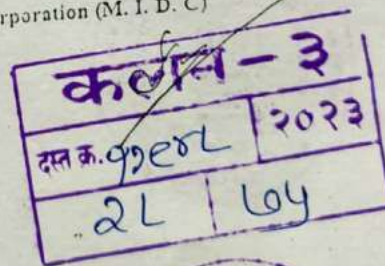 rporation (M. I. D. C)
कलन - ३
दस्त क्र. १७९८ २०२३
२८ ७५